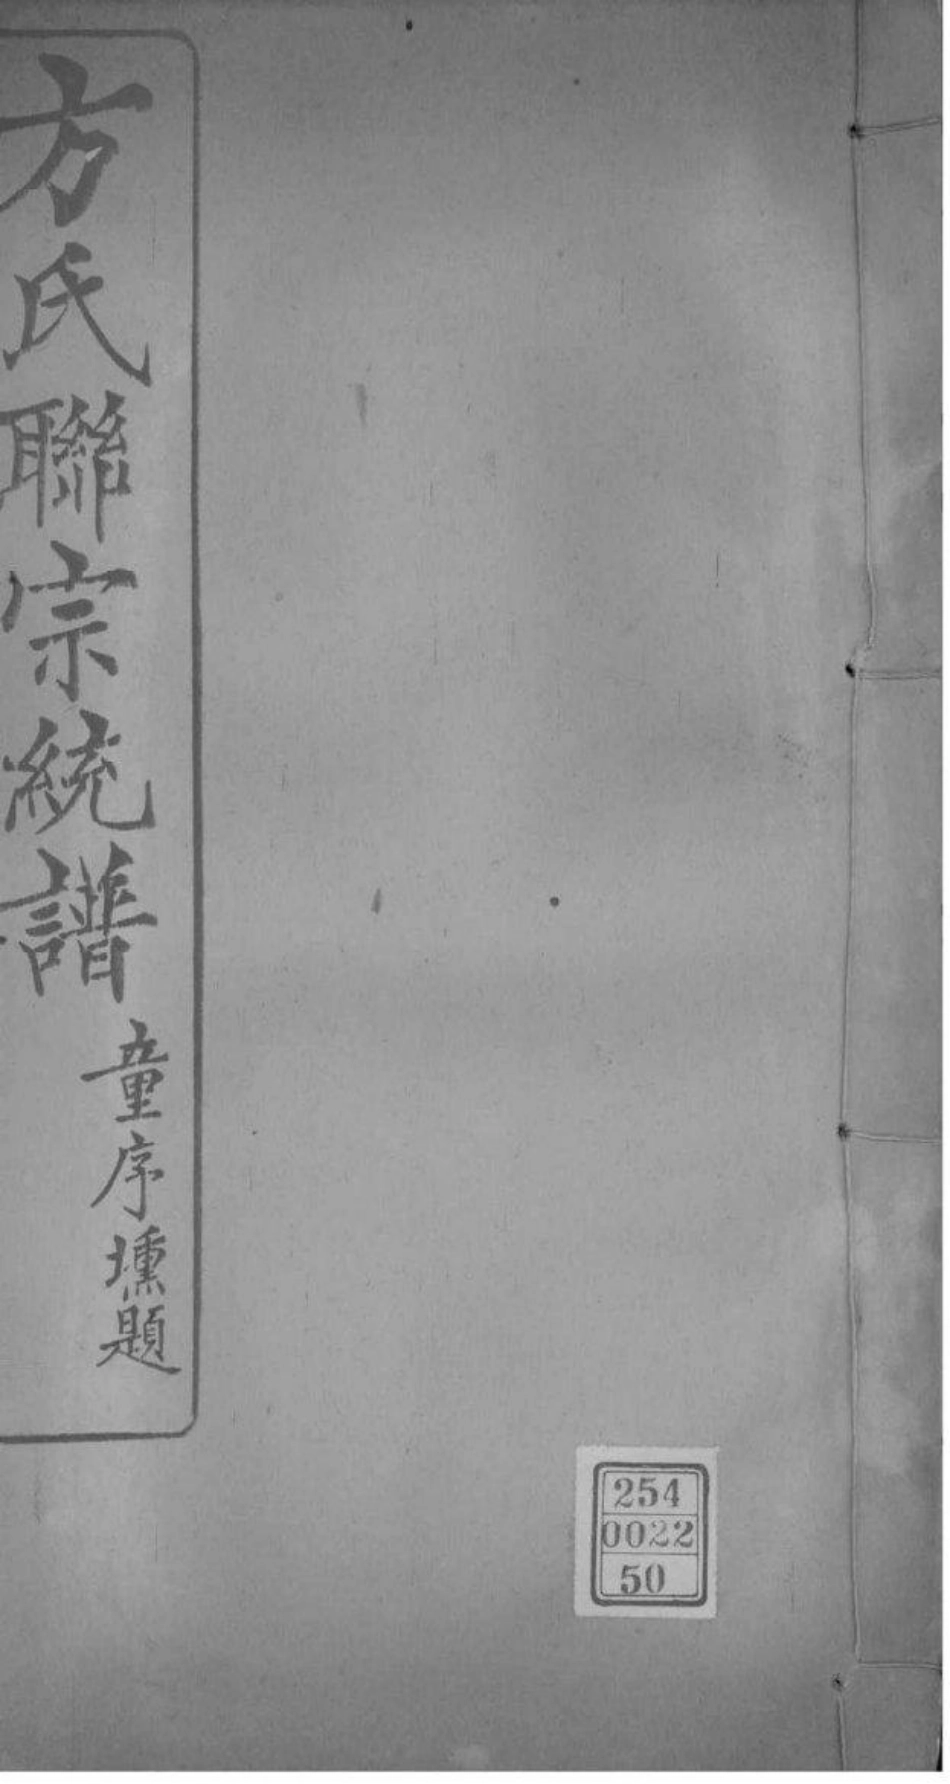 方氏聯宗統譜
童序壎題
254
0022
50